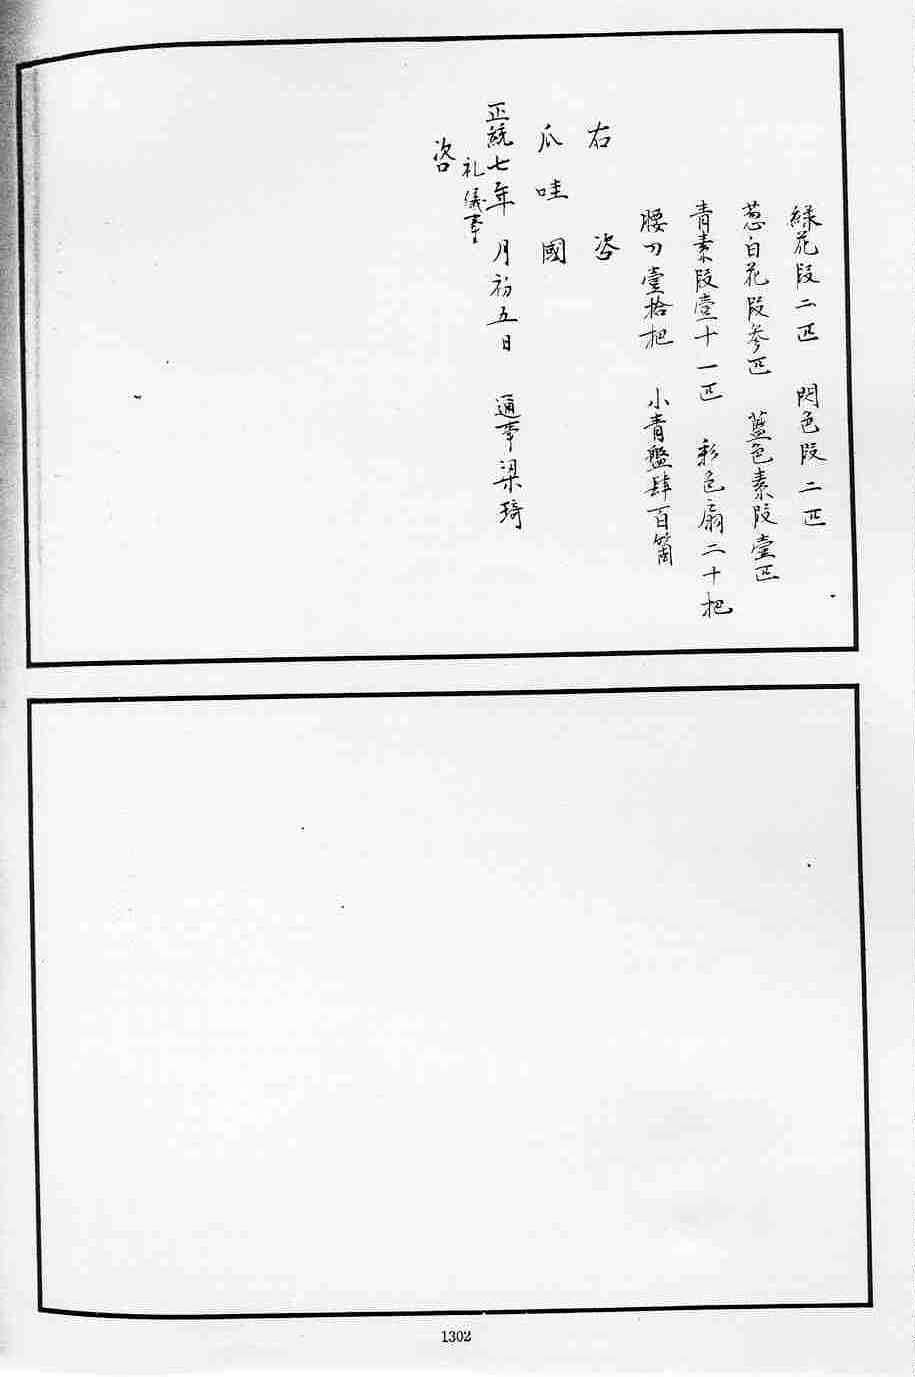 綠花段二匹 閃色段二匹
葱白花段參匹 藍色素段壹匹
青素段壹十一匹 彩色扇二十把
腰刀壹拾把 小青盤肆百箇
右 咨
爪 哇 國
正統七年 月初五日 通事梁琦
礼儀事
咨
1302